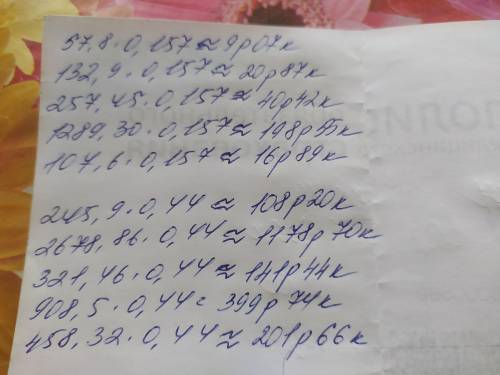 57,8·0,157≈9р07к
132,9·0,157≈20р87к
257,45·0,157≈40р42к
1289,30·0,157≈198р55к
107,6·0,157≈16р89к
245,9·0,44≈108р20к
2678,86·0,44≈1178р70к
321,46·0,44≈141р44к
908,5·0,44=399р74к
458,32·0,44≈201р66к